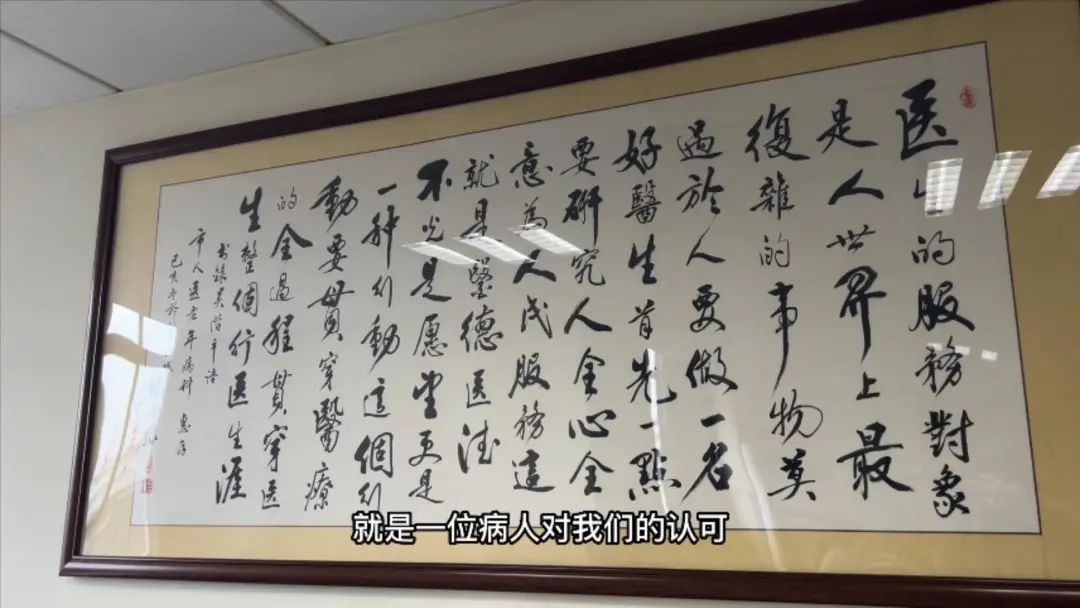 医生的服務對象
是人世界上最
復雜的事物莫
過於人要做一名
好醫生首先一點
要研究人全心全
意為人民服務這
就是醫德医德
不光是愿望更是
一种行動這個行
動要貫穿醫療
的全過程貫穿医
生整個行医生涯
书錄吴階平语
市人医老年病科 惠存
己亥年於
就是一位病人对我们的认可